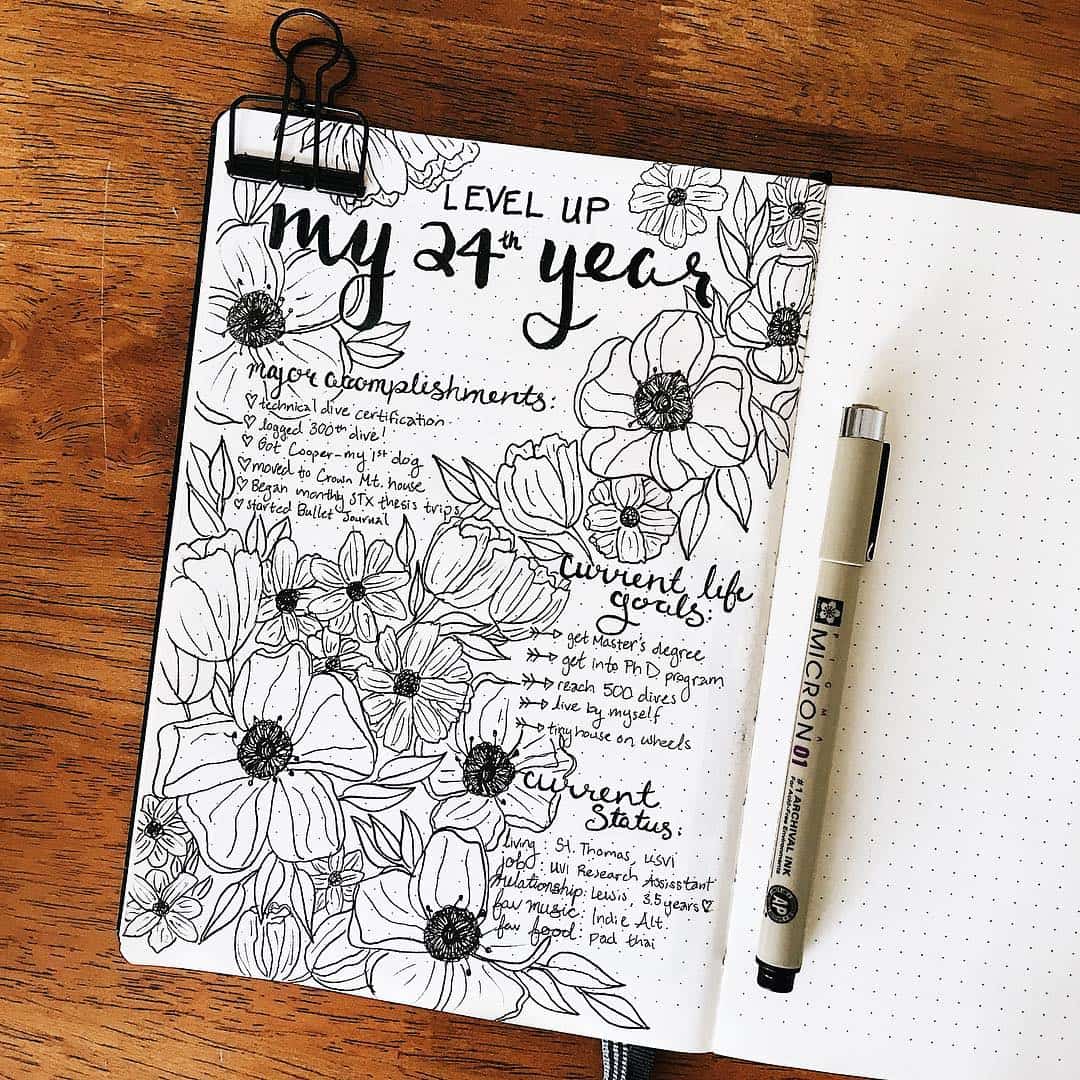 LEVEL UP
my 24th year
major accomplishments:
♡ technical dive certification
♡ logged 300th dive!
♡ Got Cooper - my 1st dog
♡ moved to Crown Mt. house
♡ Began monthly STX thesis trips
♡ started Bullet Journal
current life
goals:
get Master's degree
get into PhD program
reach 500 dives
live by myself
tiny house on wheels
current
Status:
living: St. Thomas, USVI
job: UVI Research Assisstant
relationship: Lewis, 3.5 years ♡
fav music: Indie Alt.
fav food: pad thai
PIGMA
MICRON 01
#1 ARCHIVAL INK
For Acid-Free Environments
AP